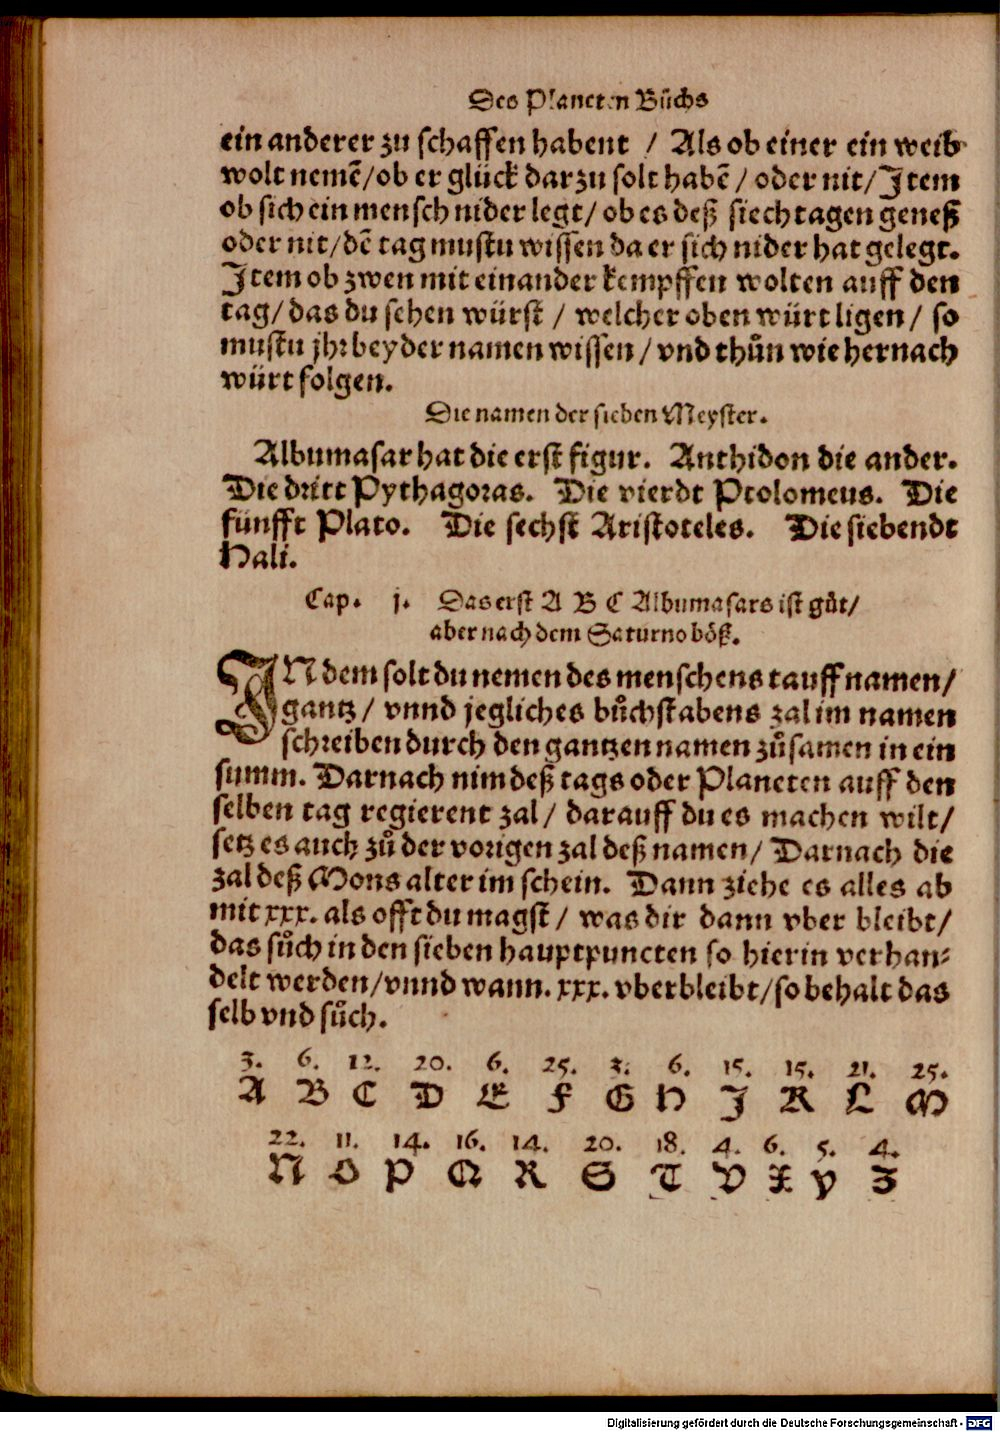 Des Planeten Bůchs
ein anderer zu schaffen habent / Als ob einer ein weib
wolt nemē/ob er glück darzu solt habē / oder nit/Item
ob sich ein mensch nider legt/ ob es deß siechtagen geneß
oder nit/dē tag mustu wissen da er sich nider hat gelegt.
Item ob zwen mit einander kempffen wolten auff den
tag/ das du sehen würst / welcher oben würt ligen / so
mustu jhr beyder namen wissen / vnd thůn wie hernach
würt folgen.
Die namen der sieben Meyster.
Albumasar hat die erst figur. Anthidon die ander.
Die dritt Pythagoras. Die vierdt Ptolomeus. Die
fünfft Plato. Die sechst Aristoteles. Die siebendt
Hali.
Cap. j. Das erst A B C Albumasars ist gůt/
aber nach dem Saturno böß.
IN dem solt du nemen des menschens tauff namen/
gantz / vnnd jegliches bůchstabens zal im namen
schreiben durch den gantzen namen zůsamen in ein
summ. Darnach nim deß tags oder Planeten auff den
selben tag regierent zal / darauff du es machen wilt/
setz es auch zů der vorigen zal deß namen/ Darnach die
zal deß Mons alter im schein. Dann ziehe es alles ab
mit xxx. als offt du magst / was dir dann vber bleibt/
das sůch in den sieben hauptpuncten so hierin verhan⸗
delt werden/vnnd wann. xxx. vberbleibt/so behalt das
selb vnd sůch.
3. 6. 12. 20. 6. 25. 3. 6. 15. 15. 21. 25.
A B C D E F G H I K L M
22. 11. 14. 16. 14. 20. 18. 4. 6. 5. 4.
N O P Q R S T V X Y Z
Digitalisierung gefördert durch die Deutsche Forschungsgemeinschaft - DFG